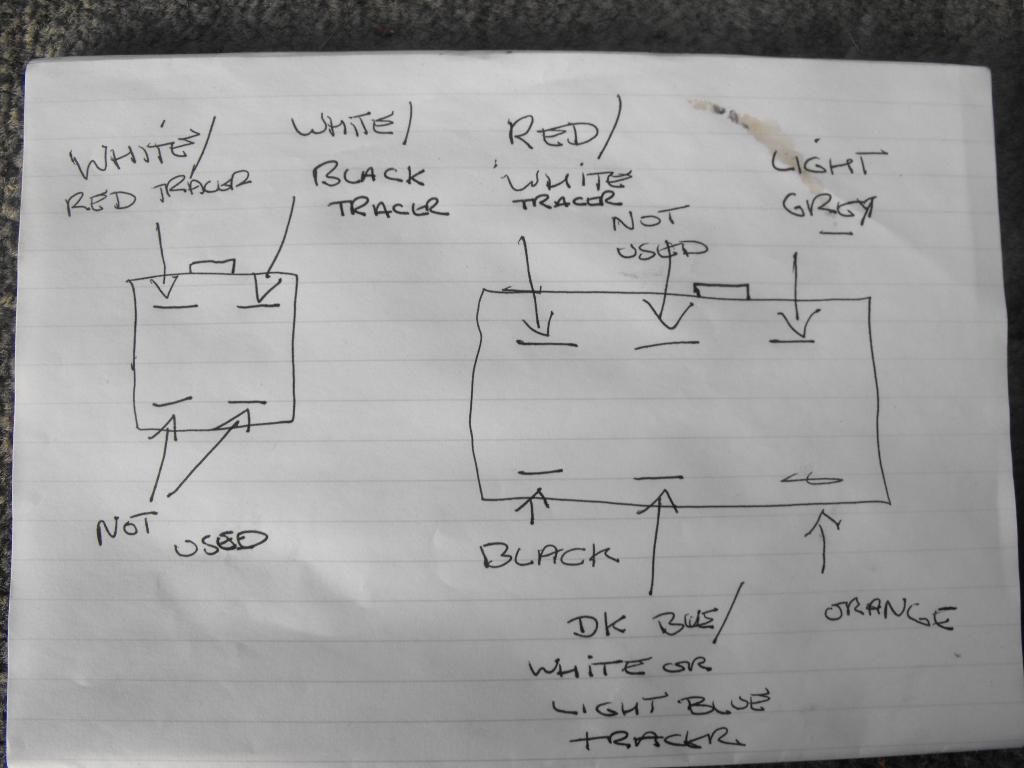 WHITE/
RED TRACER
WHITE/
BLACK
TRACER
RED/
WHITE
TRACER
NOT
USED
LIGHT
GREY
NOT
USED
BLACK
DK BLUE/
WHITE OR
LIGHT BLUE
TRACER
ORANGE